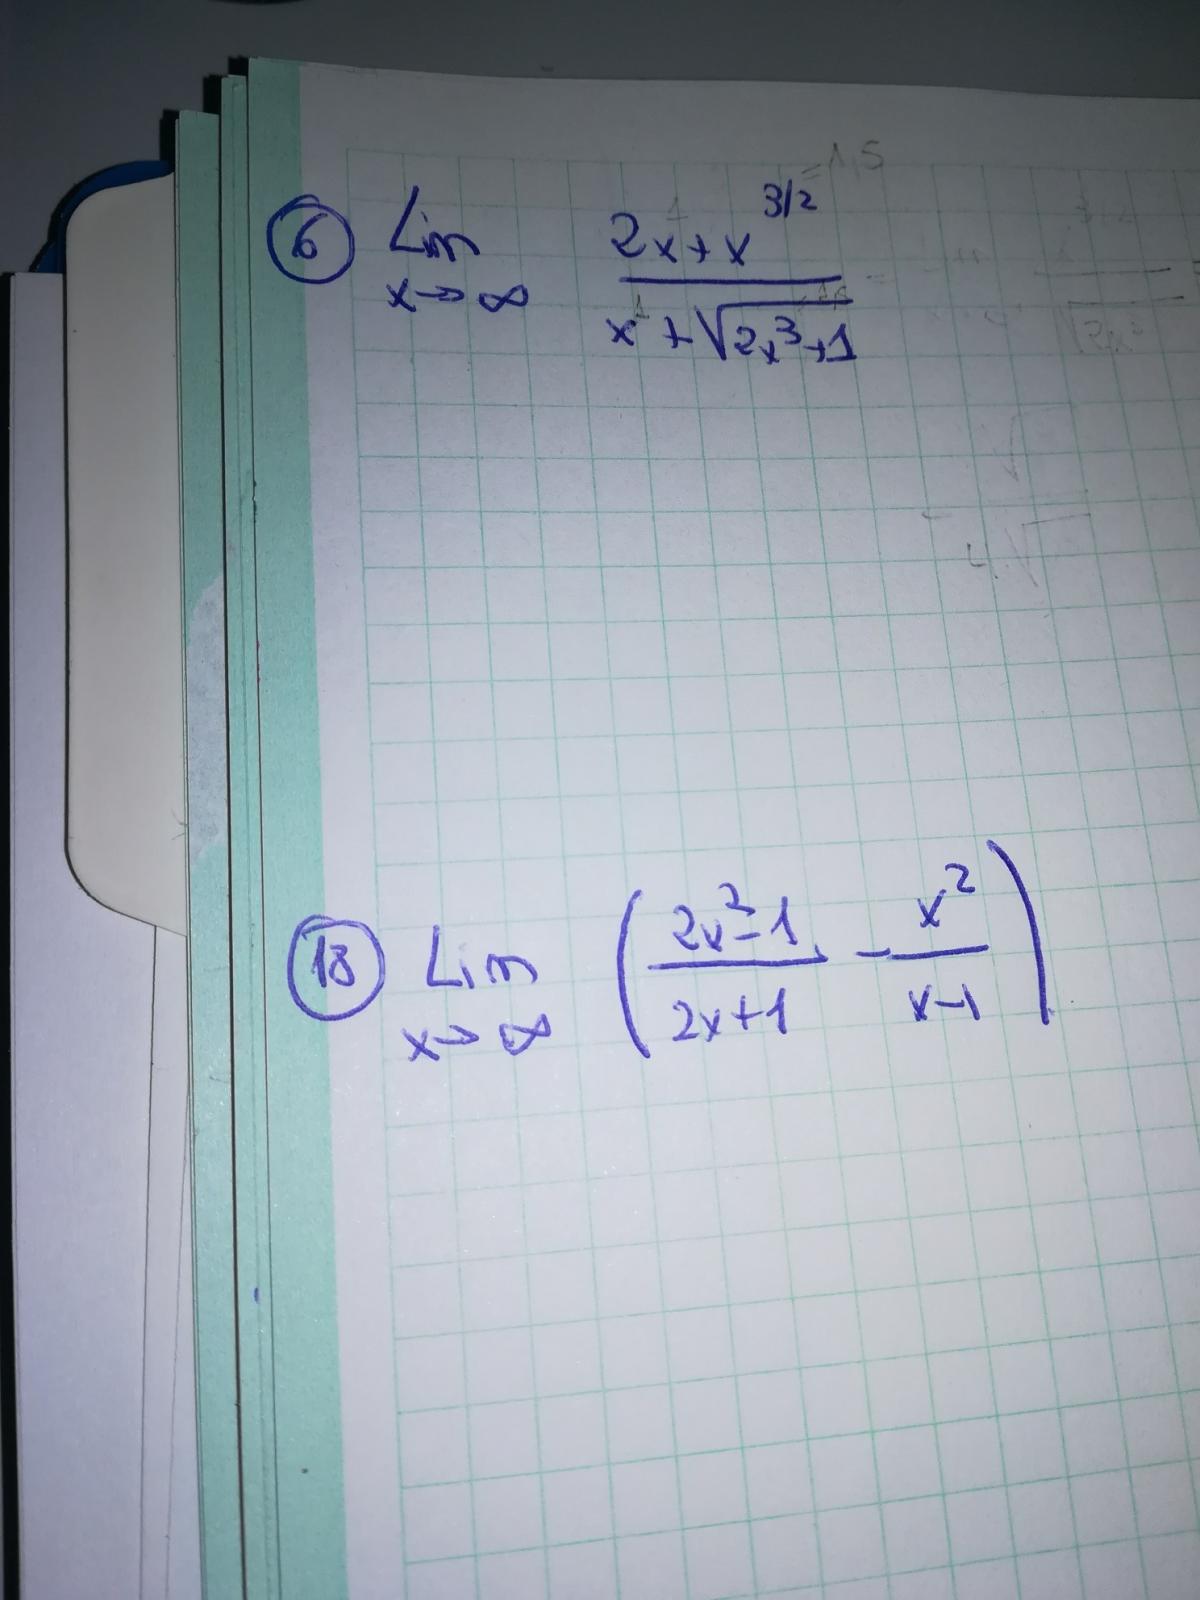 = 1,5
⑥ Lim x→∞ (2x + x^(3/2)) / (x + √(2x³+1))
⑱ Lim x→∞ ( (2x²-1)/(2x+1) - x²/(x-1) )